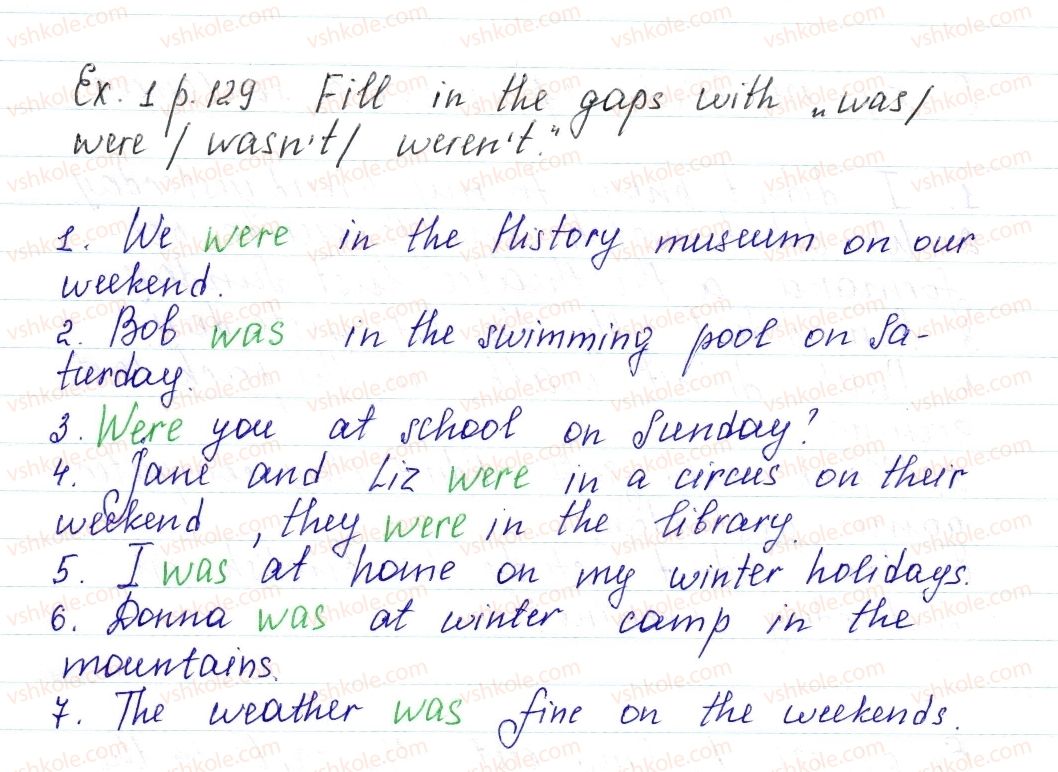 Ex. 1 p. 129 Fill in the gaps with „was/
were / wasn't / weren't."
1. We were in the History museum on our
weekend.
2. Bob was in the swimming pool on Sa-
turday.
3. Were you at school on Sunday?
4. Jane and Liz were in a circus on their
weekend, they were in the library.
5. I was at home on my winter holidays.
6. Donna was at winter camp in the
mountains.
7. The weather was fine on the weekends.
vshkole.com